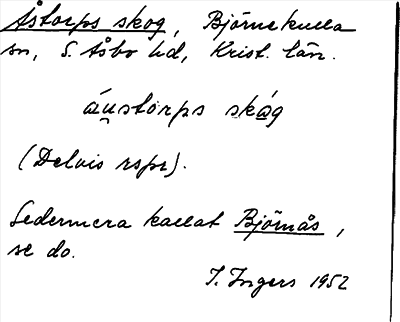 Åstorps skog, Björnekulla
sn, S. Åsbo hd, Krist. län.
áu̯storps skåg
(Delvis rspr).
Sedermera kallat Björnås,
se do.
I. Ingers 1952